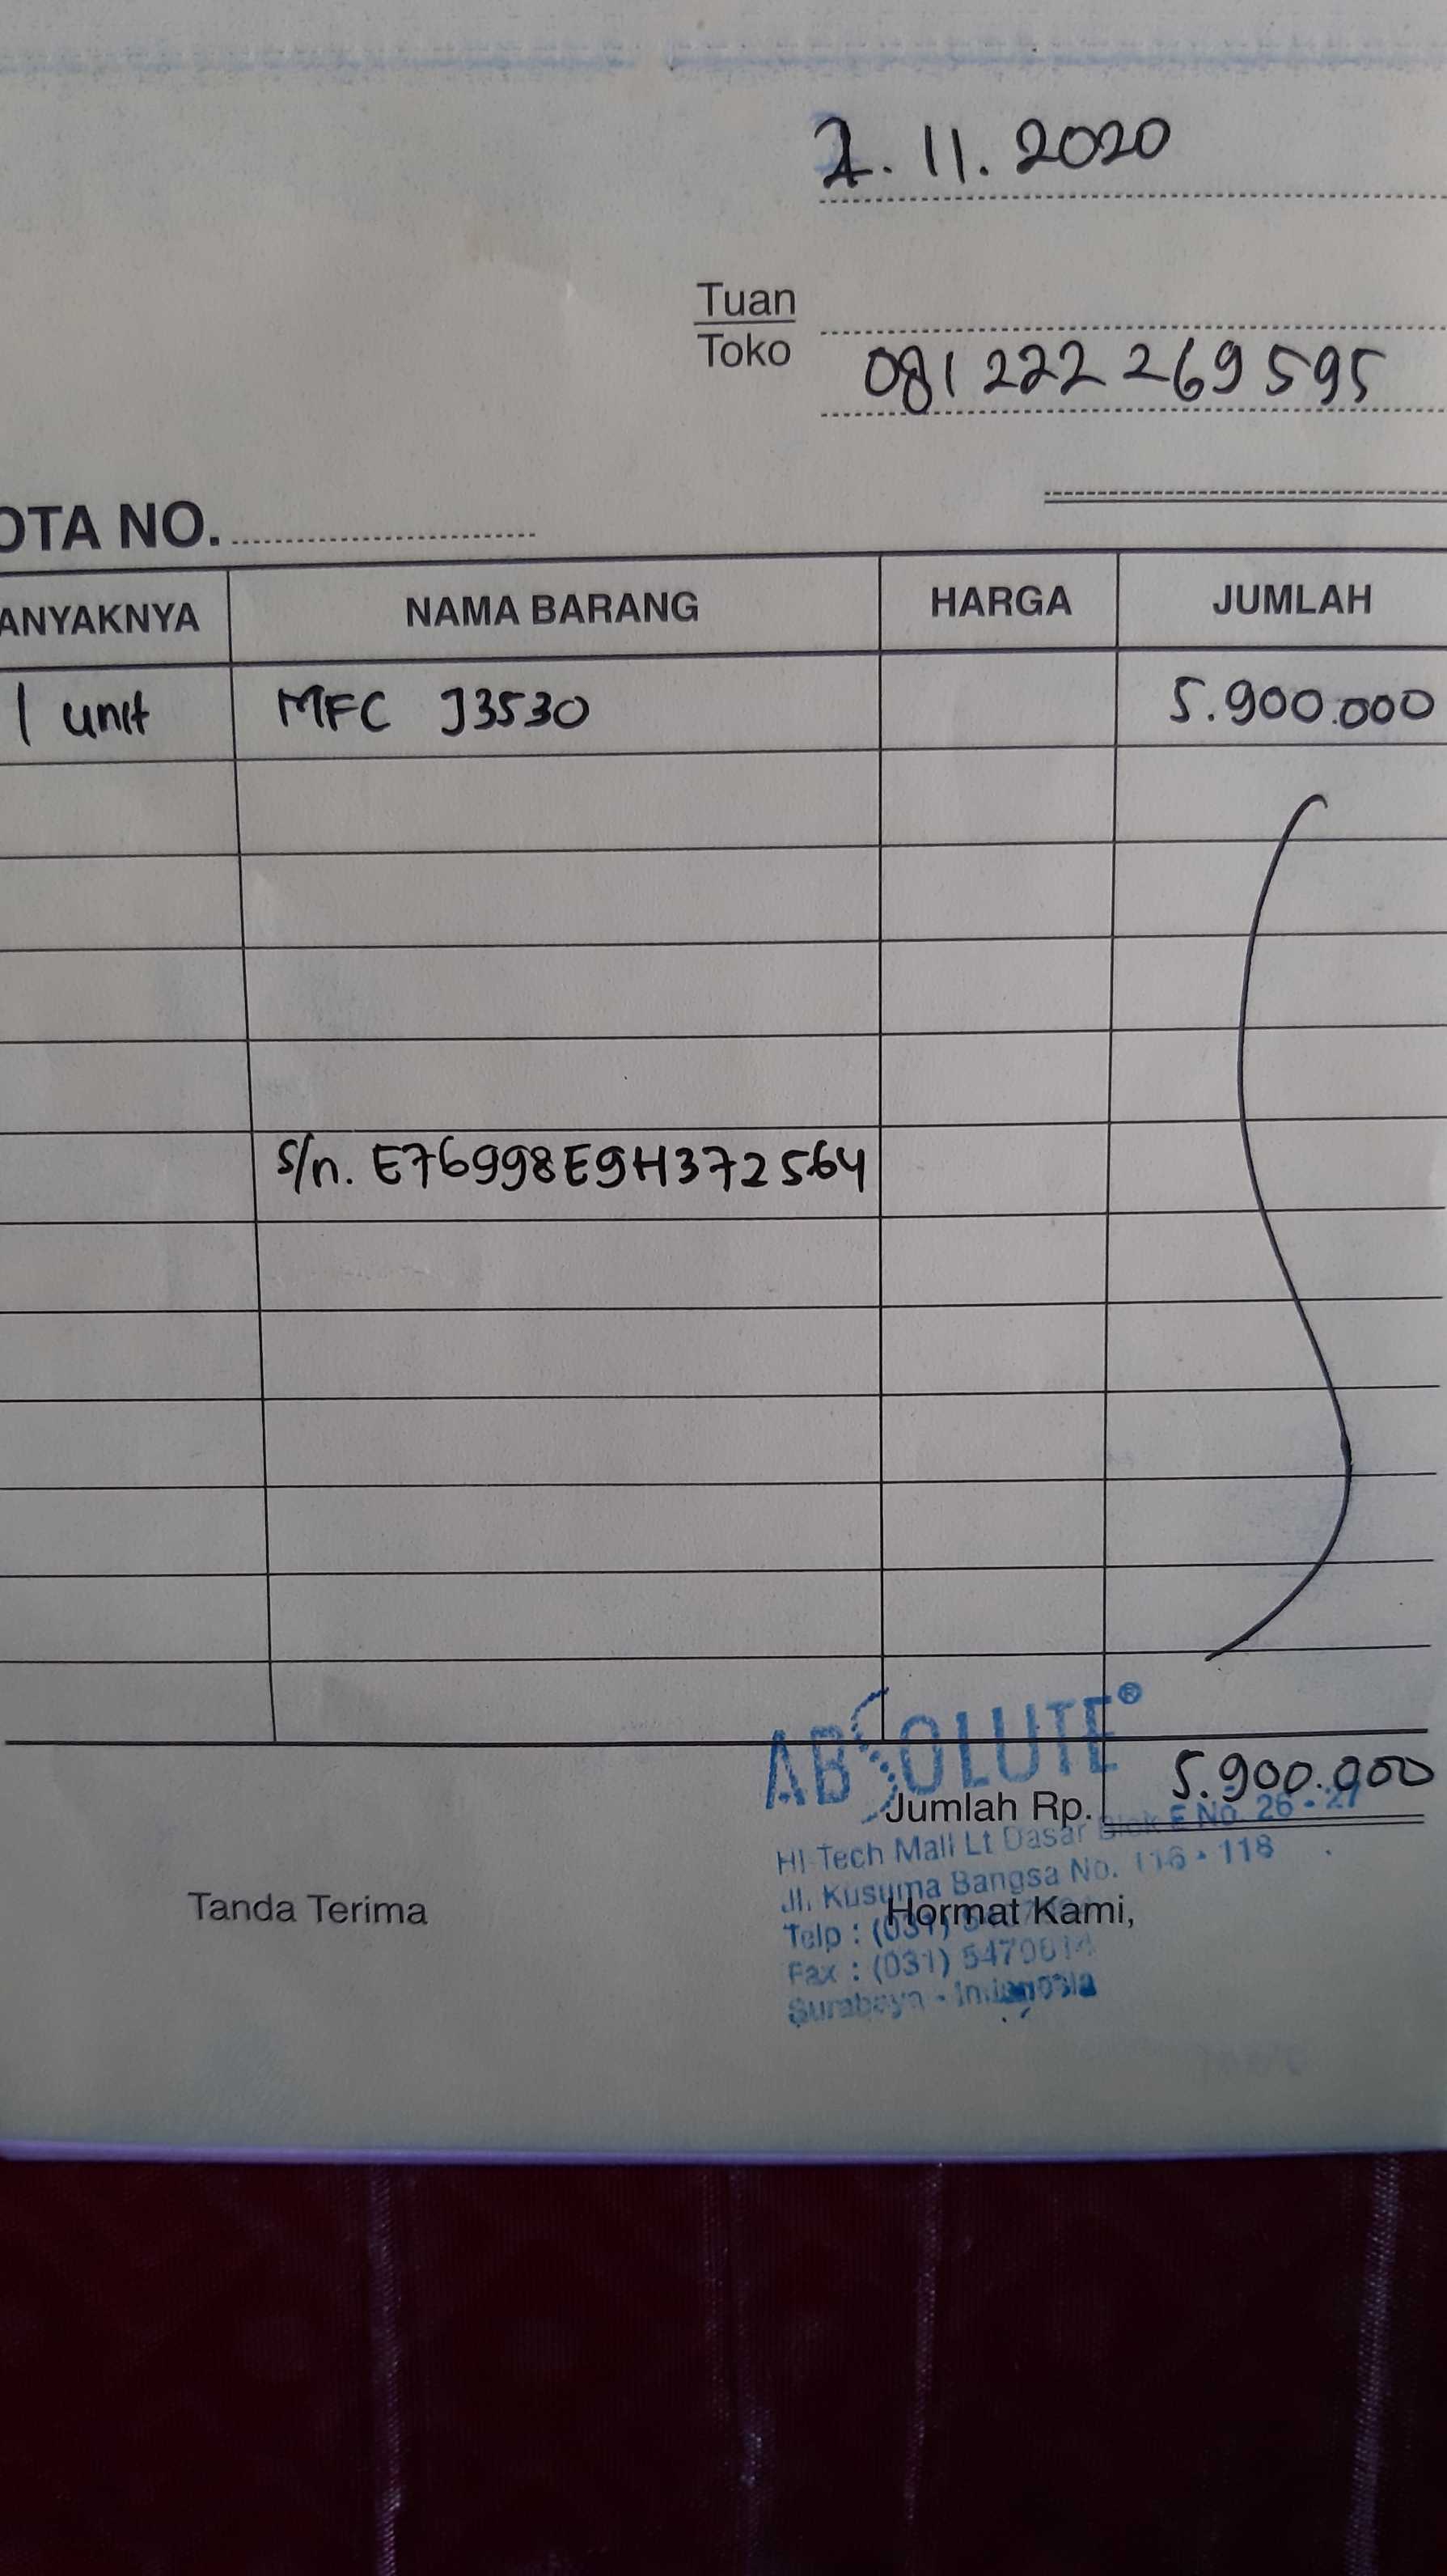 . 11. 2020
Tuan
Toko
081 222 269 595
OTA NO.
ANYAKNYA NAMA BARANG HARGA JUMLAH
1 unit MFC J3530 5.900.000
S/n. E76998E9H372564
ABSOLUTE®
Jumlah Rp. 5.900.000
HI-Tech Mall Lt Dasar Blok E No. 26 - 27
Jl. Kusuma Bangsa No. 116 - 118
Tanda Terima Hormat Kami,
Telp : (031)
Fax : (031)
Surabaya - Indonesia